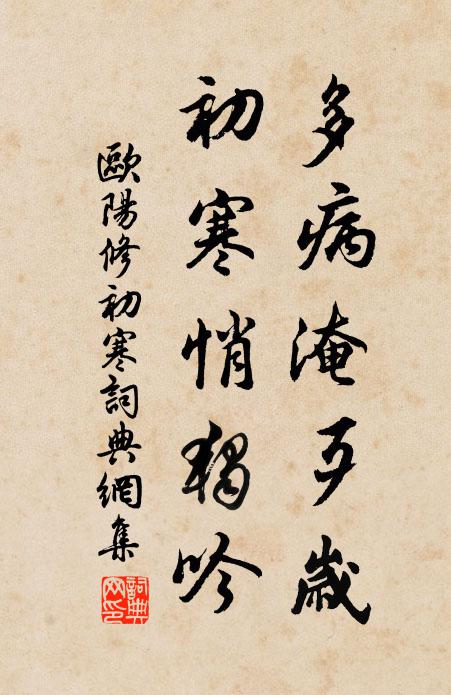 多病淹歲
初寒悄獨吟
歐陽修初寒詞典網集
詞典
网印